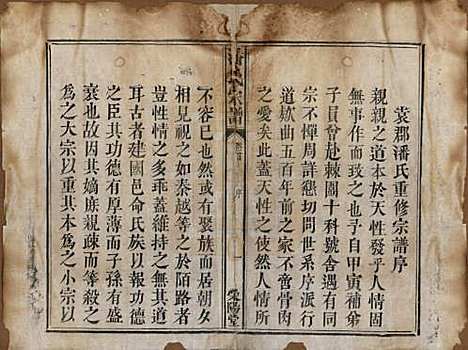 袁郡潘氏重修宗譜序
親親之道本于天性發乎人情固
無事作而致之也自甲寅補弟
子員曾赴棘闈十科號舍遇同
宗不憚周詳懇切問世系序派行
道欵曲五百年前之家不啻骨肉
之愛矣此蓋天性人情所
潘氏宗譜
卷首
序
榮陽堂
不容已也又有聚族而居朝夕
相見視之如秦越等之於陌路者
豈性情之多乖蓋維持之無其方
耳古者建國邑命氏族以報功德
之臣其功德有厚薄而子孫有盛
衰也因其嫡庶親疎而等殺之
為之大宗以重其本為之小宗以